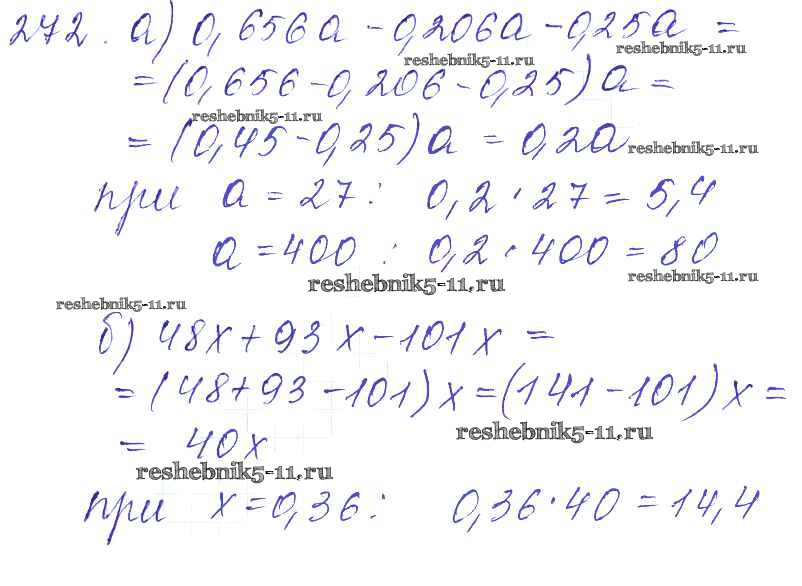 272. а) 0,656a - 0,206a - 0,25a =
reshebnik5-11.ru
reshebnik5-11.ru
= (0,656 - 0,206 - 0,25) a =
reshebnik5-11.ru
= (0,45 - 0,25) a = 0,2a
reshebnik5-11.ru
при a = 27 : 0,2 · 27 = 5,4
a = 400 : 0,2 · 400 = 80
reshebnik5-11.ru
reshebnik5-11.ru
reshebnik5-11.ru
б) 48x + 93x - 101x =
= (48 + 93 - 101) x = (141 - 101) x =
reshebnik5-11.ru
= 40x
reshebnik5-11.ru
при x = 0,36 : 0,36 · 40 = 14,4